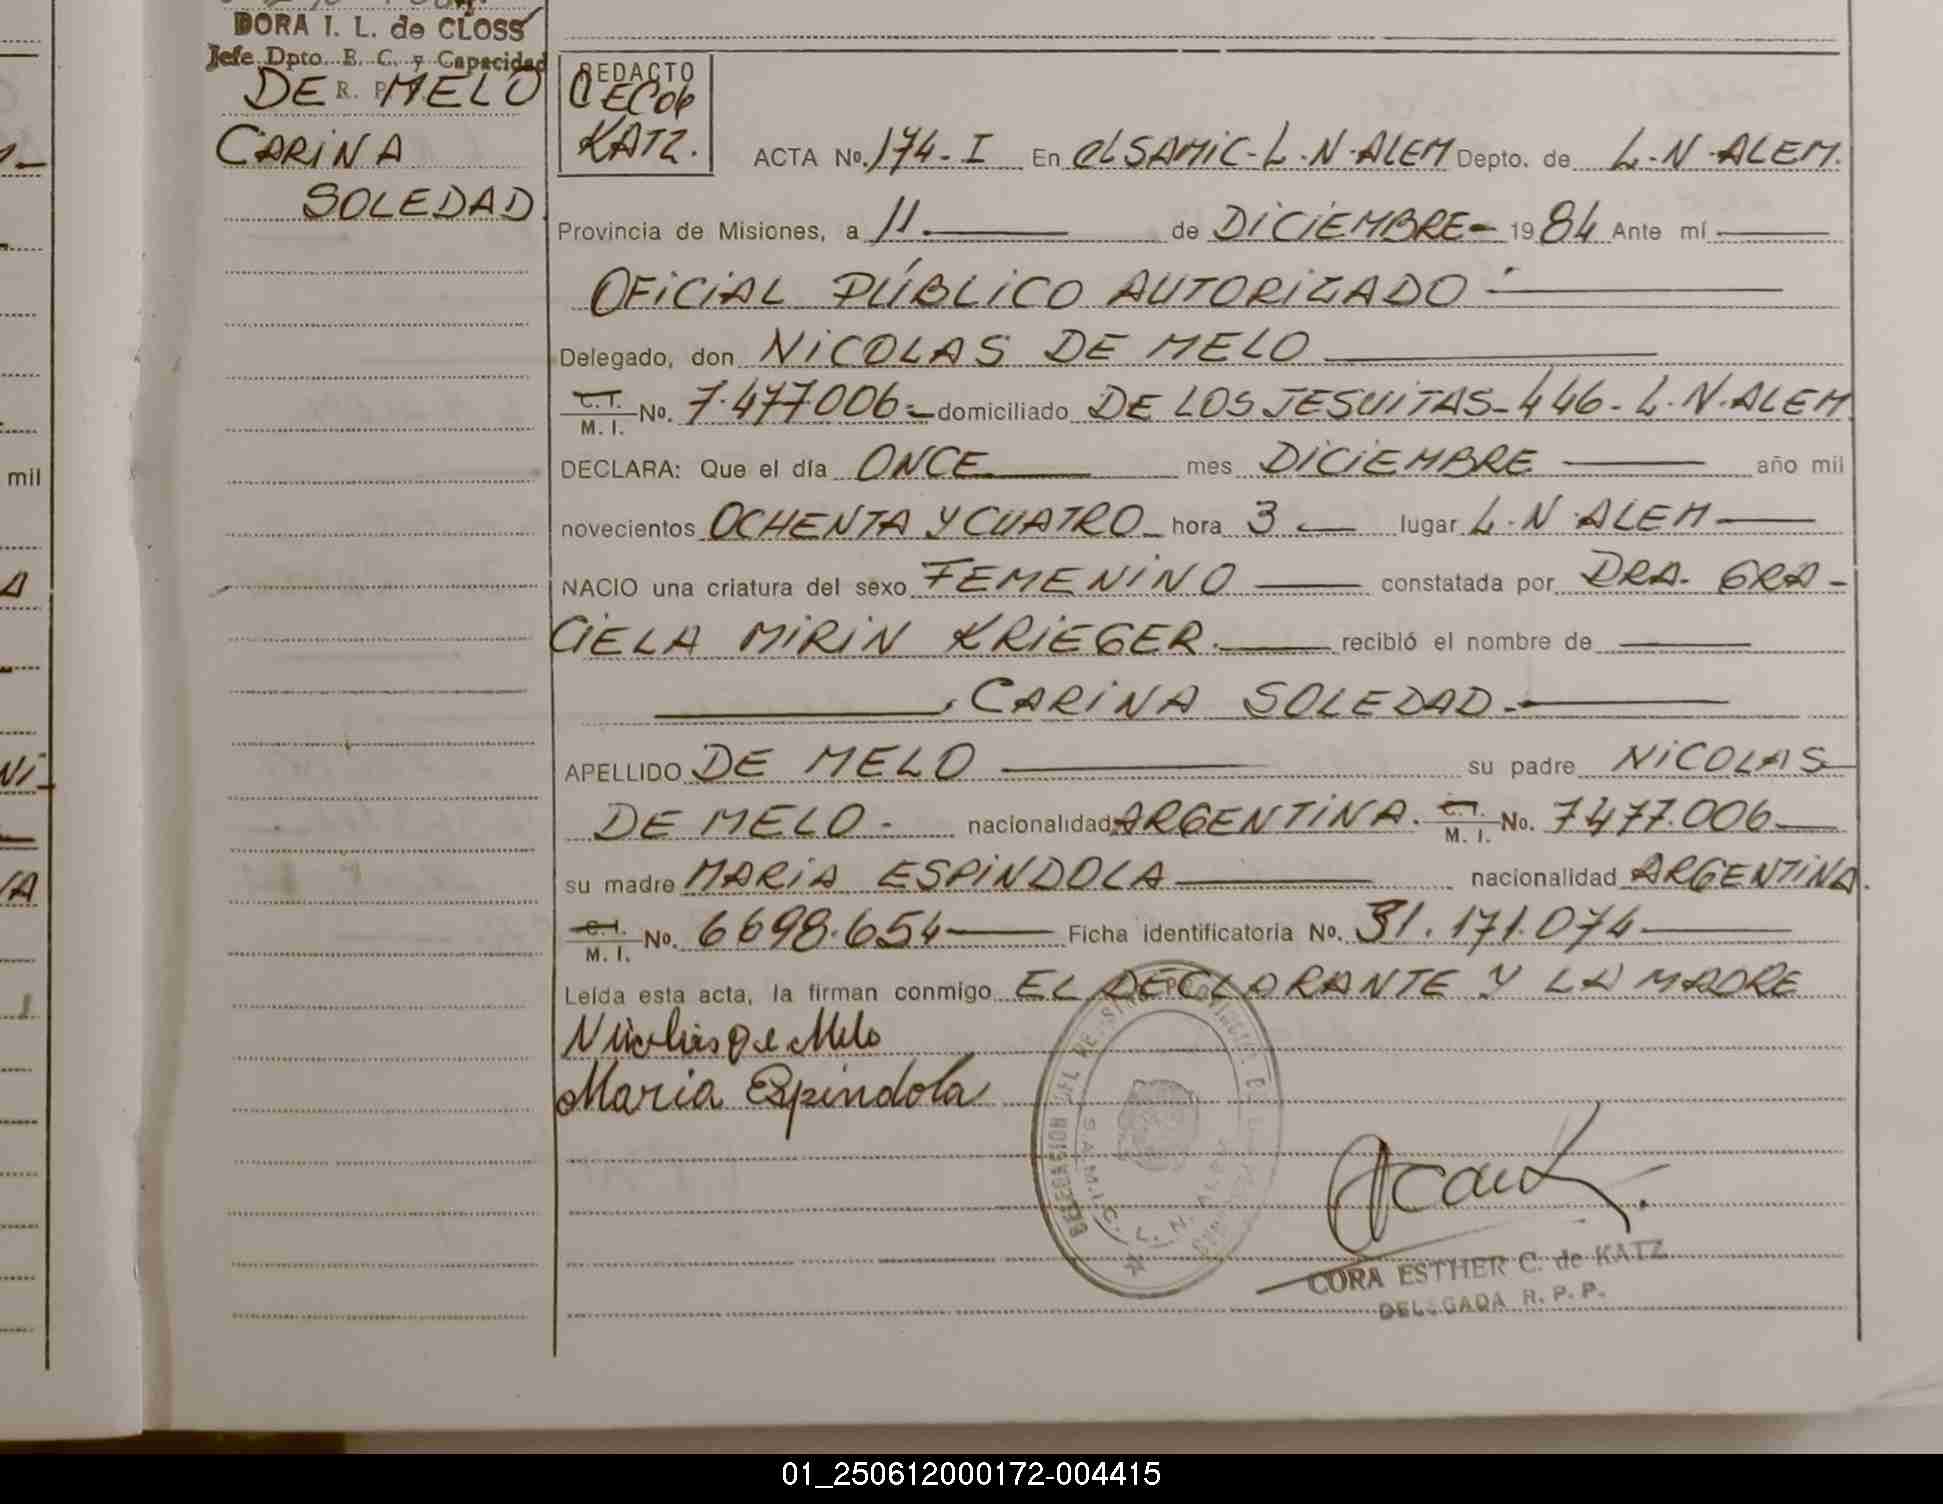 DORA I. L. de CLOSS
Jefe Dpto. E. C. y Capacidad
R. P.
DE MELO
CARINA
SOLEDAD
REDACTO
KATZ.
ACTA No. 174-I En el SAMIC-L.N.ALEM Depto. de L.N.ALEM.
Provincia de Misiones, a 11. de DICIEMBRE- 1984 Ante mí
OFICIAL PÚBLICO AUTORIZADO
Delegado, don NICOLAS DE MELO
C.I. M. I. No. 7.477.006.- domiciliado DE LOS JESUITAS-446-L.N.ALEM
DECLARA: Que el día ONCE mes DICIEMBRE año mil
novecientos OCHENTA Y CUATRO hora 3 lugar L.N.ALEM
NACIO una criatura del sexo FEMENINO constatada por DRA. GRA-
CIELA MIRIN KRIEGER. recibió el nombre de
CARINA SOLEDAD.
APELLIDO DE MELO su padre NICOLAS
DE MELO- nacionalidad ARGENTINA. C.I. M. I. No. 7477.006
su madre MARIA ESPINDOLA nacionalidad ARGENTINA.
C.I. M. I. No. 6698.654 Ficha identificatoria No. 31.171.074
Leída esta acta, la firman conmigo EL DECLARANTE Y LA MADRE
Nicolas De Melo
Maria Espindola
S.A.M.I.C. L. N. ALEM
CORA ESTHER C. de KATZ
DELEGADA R. P. P.
mil
01_250612000172-004415